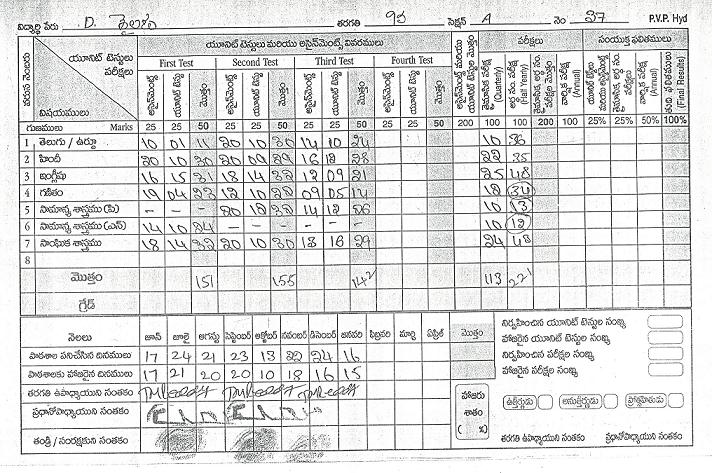 విద్యార్థి పేరు D. శైలజ తరగతి 9వ సెక్షన్ A నెం 37 P.V.P. Hyd
వరుస నెంబరు యూనిట్ టెస్టులు పరీక్షలు విషయములు
యూనిట్ టెస్టులు మరియు అసైన్‌మెంట్స్ వివరములు పరీక్షలు సంయుక్త ఫలితములు
First Test Second Test Third Test Fourth Test
అసైన్‌మెంట్స్ యూనిట్ టెస్టు మొత్తం అసైన్‌మెంట్స్ యూనిట్ టెస్టు మొత్తం అసైన్‌మెంట్స్ యూనిట్ టెస్టు మొత్తం అసైన్‌మెంట్స్ యూనిట్ టెస్టు మొత్తం
(Quarterly) (Half Yearly) (Annual) (Annual) (Final Results)
గుణములు Marks 25 25 50 25 25 50 25 25 50 25 25 50 200 100 100 200 100 25% 25% 50% 100%
1 తెలుగు / ఉర్దూ 10 01 11 20 10 30 14 10 24 10 36
2 హిందీ 20 10 30 20 09 29 16 12 28 22 35
3 ఇంగ్లీషు 16 15 31 18 14 32 12 09 21 25 48
4 గణితం 19 04 23 12 10 22 09 05 14 12 34
5 సామాన్య శాస్త్రము (పి) - - - 20 12 32 14 12 26 10 13
6 సామాన్య శాస్త్రము (ఎన్) 14 10 24 - - - 10 12
7 సాంఘిక శాస్త్రము 18 14 32 20 10 30 13 16 29 24 48
8
మొత్తం 151 155 142 113 221
గ్రేడ్
నెలలు జూన్ జూలై ఆగస్టు సెప్టెంబర్ అక్టోబర్ నవంబర్ డిసెంబర్ జనవరి ఫిబ్రవరి మార్చి ఏప్రిల్ మొత్తం
పాఠశాల పనిచేసిన దినములు 17 24 21 23 13 22 24 16
పాఠశాలకు హాజరైన దినములు 17 21 20 20 10 18 16 15
తరగతి ఉపాధ్యాయుని సంతకం
ప్రధానోపాధ్యాయుని సంతకం
తండ్రి / సంరక్షకుని సంతకం
హాజరు శాతం ( %)
నిర్వహించిన యూనిట్ టెస్టుల సంఖ్య
హాజరైన యూనిట్ టెస్టుల సంఖ్య
నిర్వహించిన పరీక్షల సంఖ్య
హాజరైన పరీక్షల సంఖ్య
ఉత్తీర్ణుడు అనుత్తీర్ణుడు ప్రోత్సహితుడు
తరగతి ఉపాధ్యాయుని సంతకం ప్రధానోపాధ్యాయుని సంతకం